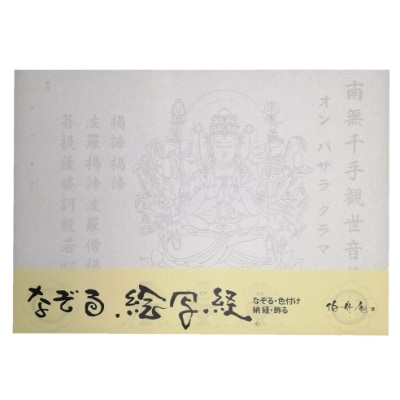 南無千手観世音
オン バザラ タラマ
羯諦羯諦
波羅羯諦波羅僧羯
菩提薩婆訶般若心
なぞる 絵写経
なぞる・色付け
納経・飾る